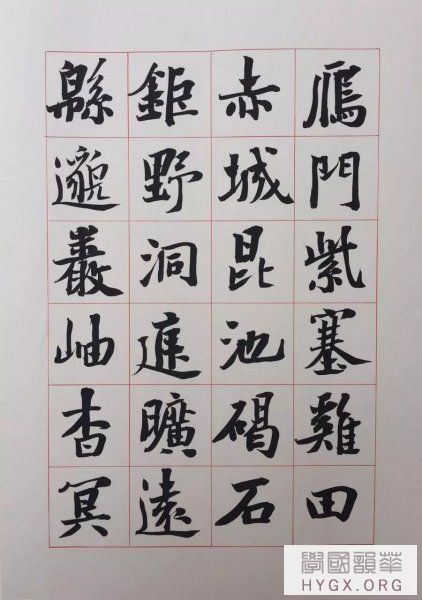 鴈門紫塞雞田
赤城昆池碣石
鉅野洞庭曠遠
緜邈巖岫杳冥
華韻國學
HYGX.ORG